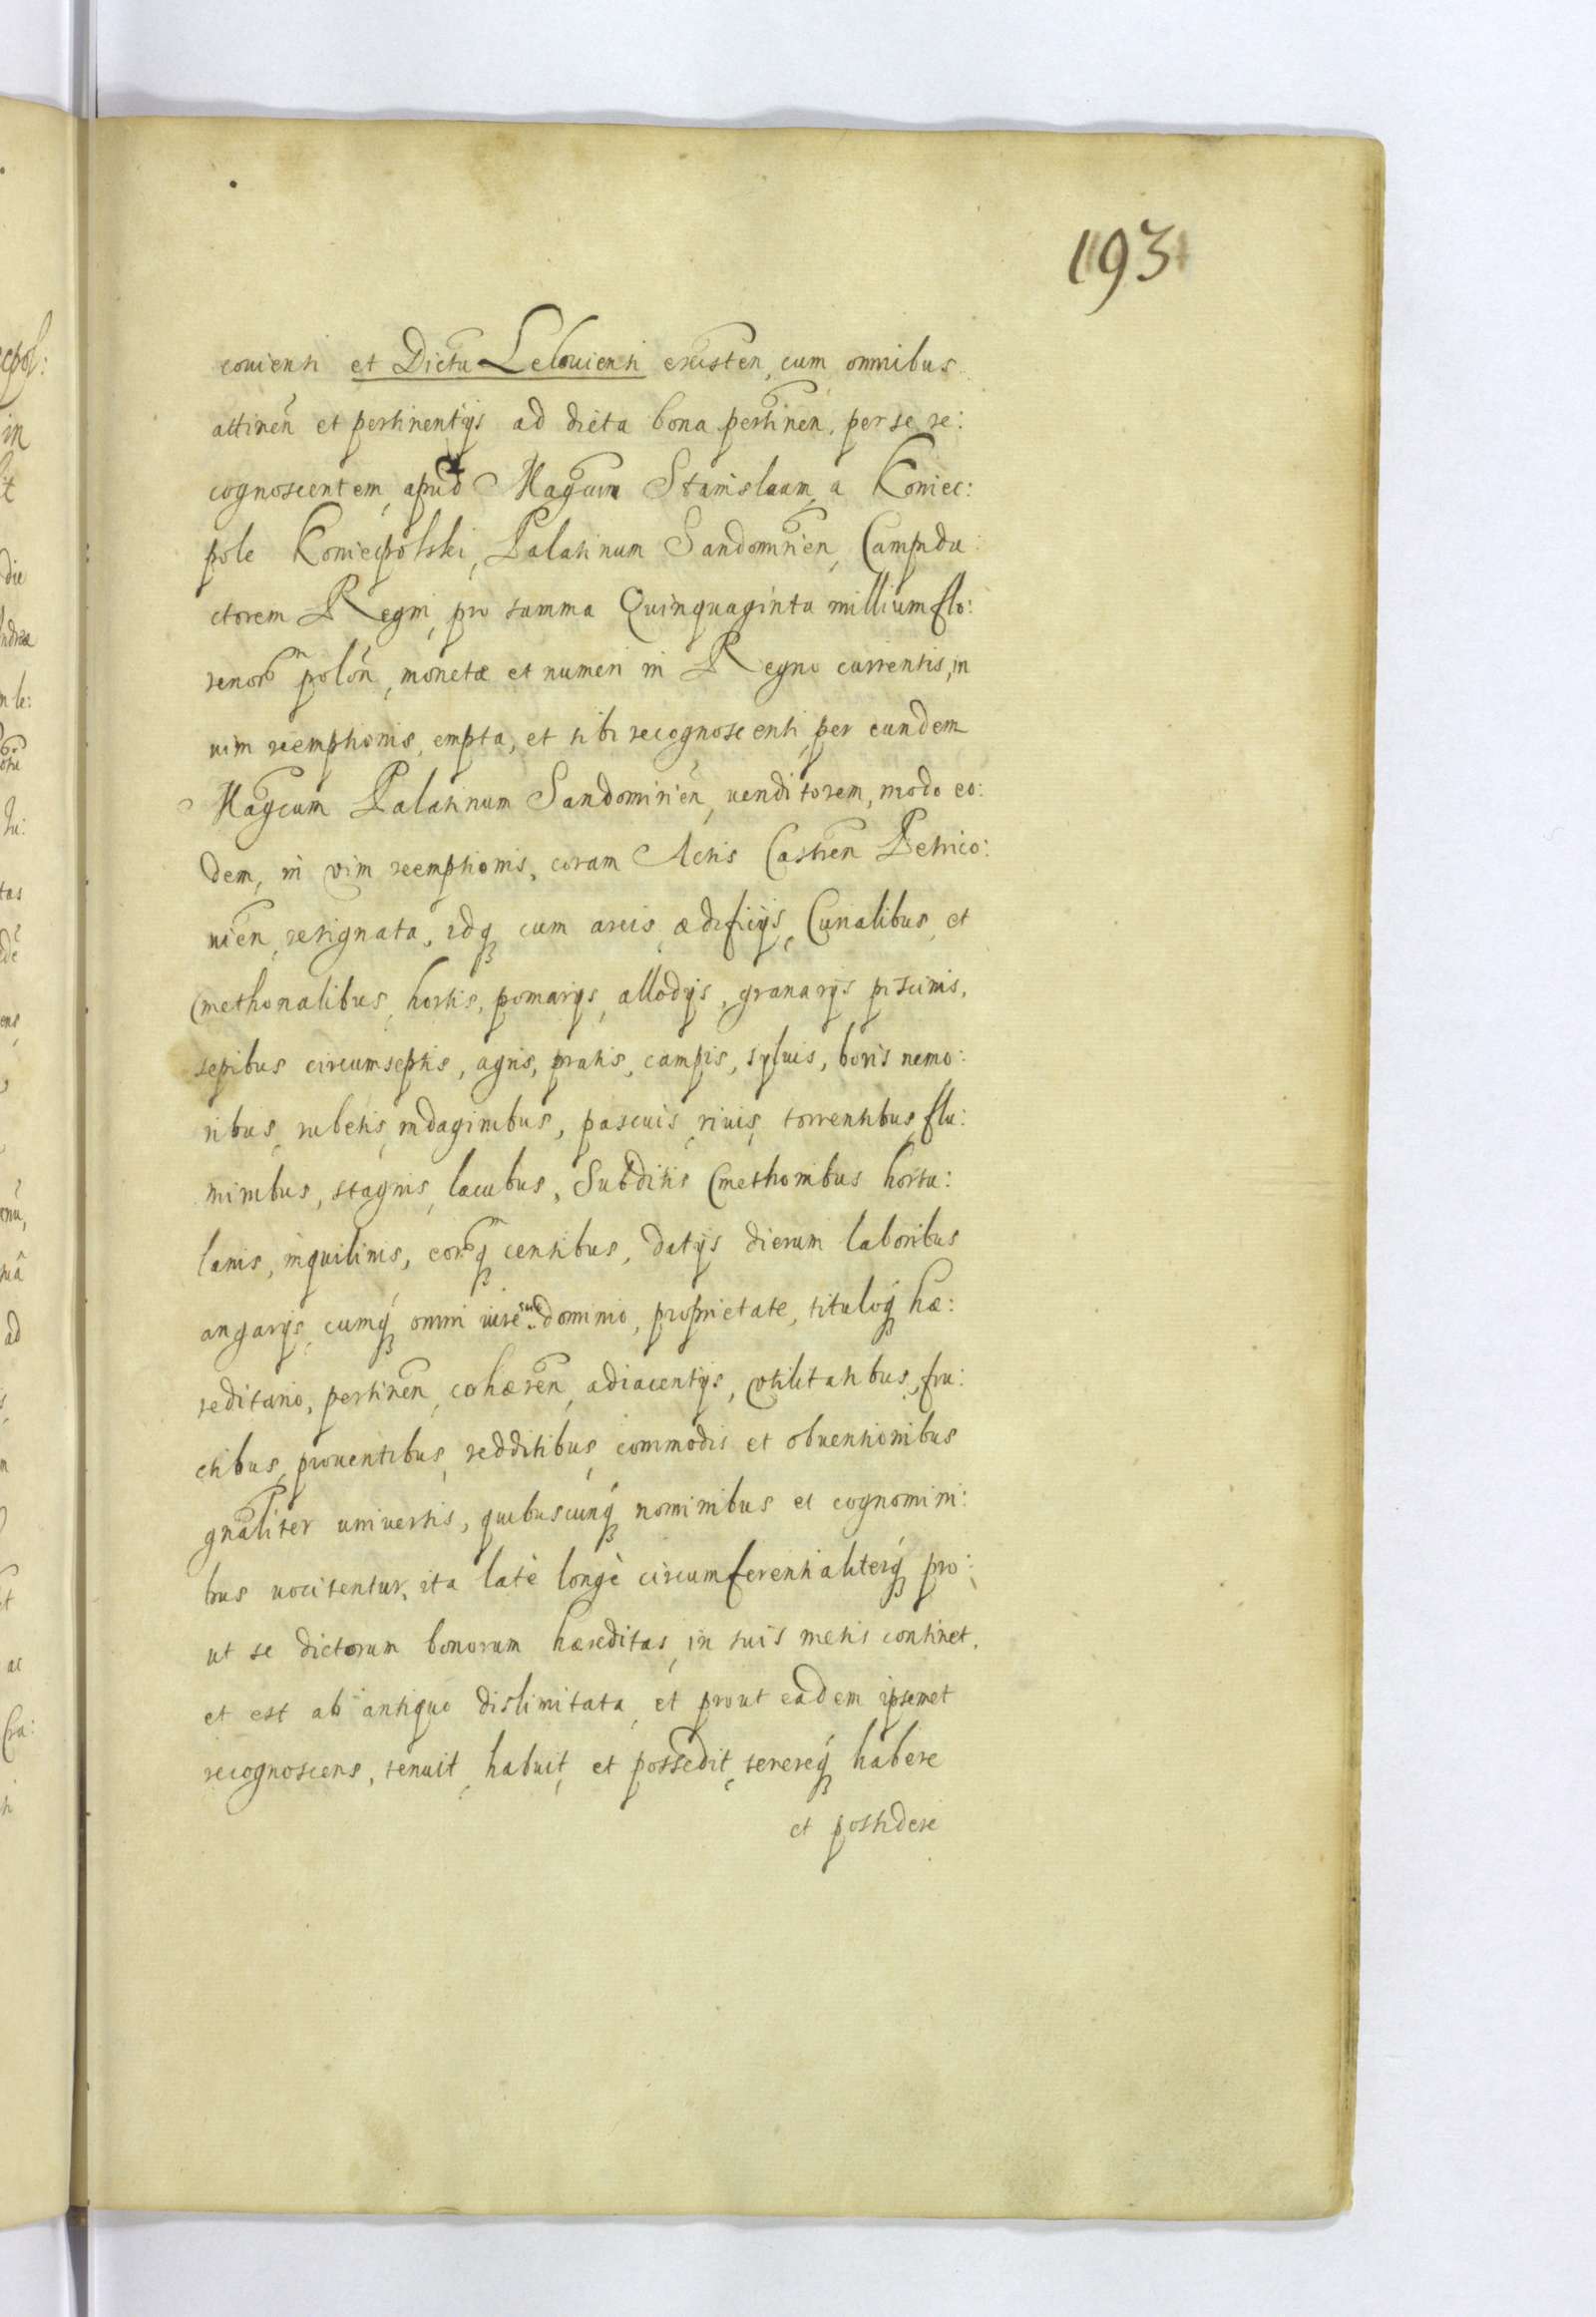 193
couiensi et Dictu Lelouiensi existen, cum omnibus
attinen et pertinentijs ad dicta bona pertinen, per se re:
cognoscentem, apud Magcum Stanislaum a Koniec:
pole Koniecpolski, Palatinum Sandomirien, Campidu
ctorem Regni, pro summa Quinquaginta millium flo:
renorum polon, monetæ et numeri in Regno currentis, in
uim reemptionis, empta, et sibi recognoscenti per eundem
Magcum Palatinum Sandomirien, uenditorem, modo eo:
dem, in vim reemptionis, coram Actis Castren Petrico:
uien, resignata, idq cum arcis, ædificijs, Curialibus, et
Cmethonalibus, hortis, pomarijs, allodijs, granarijs piscinis,
sepibus circumseptis, agris, pratis, campis, syluis, boris nemo:
ribus, rubetis, indaginibus, pascuis, riuis, torrentibus, flu:
minibus, stagnis, lacubus, Subditis Cmethonibus hortu:
lanis, inquilinis, eorumq censibus, datijs dierum laboribus
angarijs, cumq omni iure suo dominio, proprietate, tituloq hæ:
reditario, pertinen, cohæren, adiacentijs, vtilitatibus, fru:
ctibus, prouentibus, redditibus, commodis et obuentionibus
gnaliter uniuersis, quibuscunq nominibus et cognomini:
bus uocitentur, ita latè longè circumferentialiterq pro:
ut se dictorum bonorum hæreditas, in suis metis continet,
et est ab antiquo dislimitata, et prout eadem ipsemet
recognoscens, tenuit, habuit, et possedit, tenereq habere
et possidere